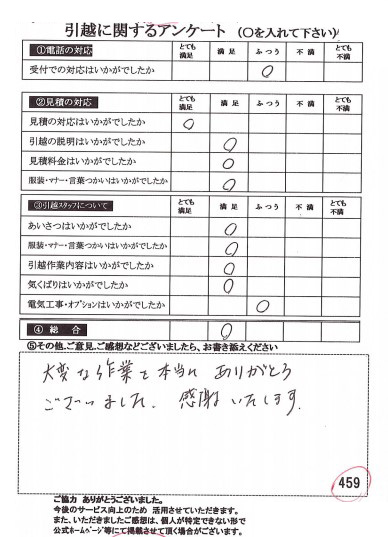 引越に関するアンケート (〇を入れて下さい)
①電話の対応 とても満足 満足 ふつう 不満 とても不満
受付での対応はいかがでしたか 〇
②見積の対応 とても満足 満足 ふつう 不満 とても不満
見積の対応はいかがでしたか 〇
引越の説明はいかがでしたか 〇
見積料金はいかがでしたか 〇
服装・マナー・言葉つかいはいかがでしたか 〇
③引越スタッフについて とても満足 満足 ふつう 不満 とても不満
あいさつはいかがでしたか 〇
服装・マナー・言葉つかいはいかがでしたか 〇
引越作業内容はいかがでしたか 〇
気くばりはいかがでしたか 〇
電気工事・オプションはいかがでしたか 〇
④ 総 合 〇
⑤その他、ご意見、ご感想などございましたら、お書き添えください
大変な作業を本当に ありがとう
ございました。 感謝いたします。
459
ご協力 ありがとうございました。
今後のサービス向上のため 活用させていただきます。
また、いただきましたご感想は、個人が特定できない形で
公式ホームページ等にて掲載させて頂く場合がございます。